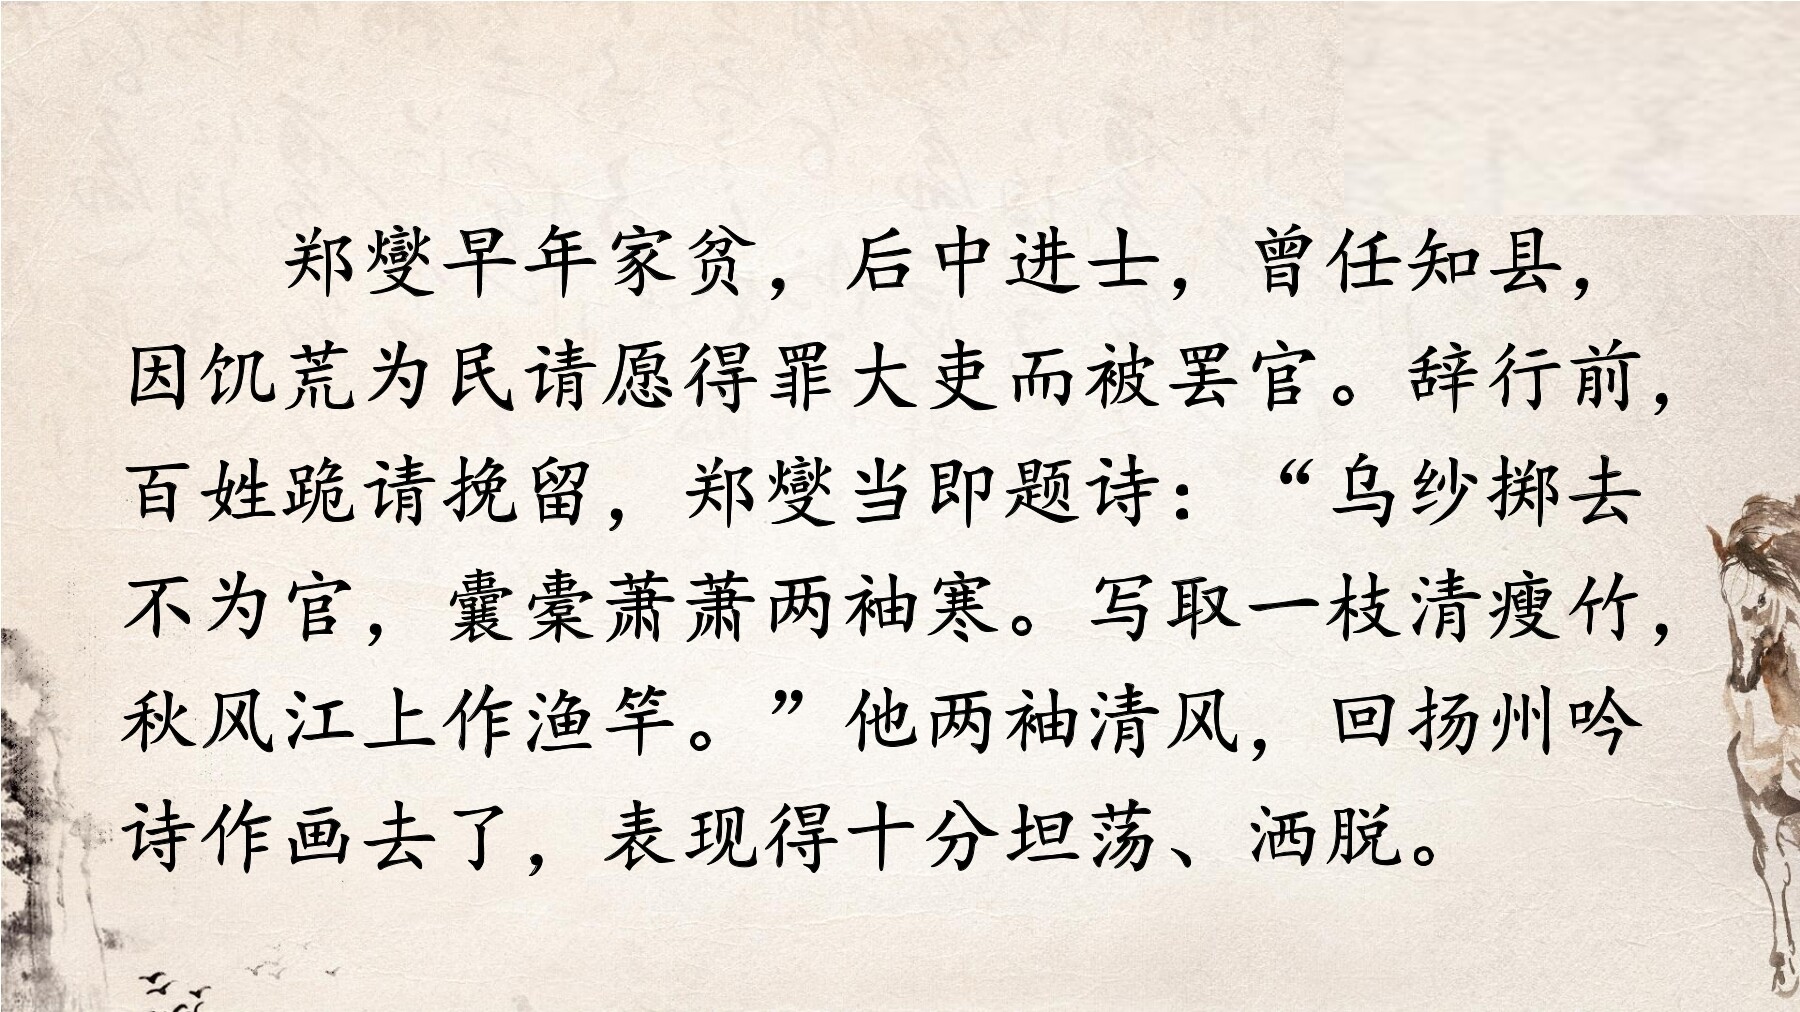 郑燮早年家贫，后中进士，曾任知县，
因饥荒为民请愿得罪大吏而被罢官。辞行前，
百姓跪请挽留，郑燮当即题诗：“乌纱掷去
不为官，囊橐萧萧两袖寒。写取一枝清瘦竹，
秋风江上作渔竿。”他两袖清风，回扬州吟
诗作画去了，表现得十分坦荡、洒脱。